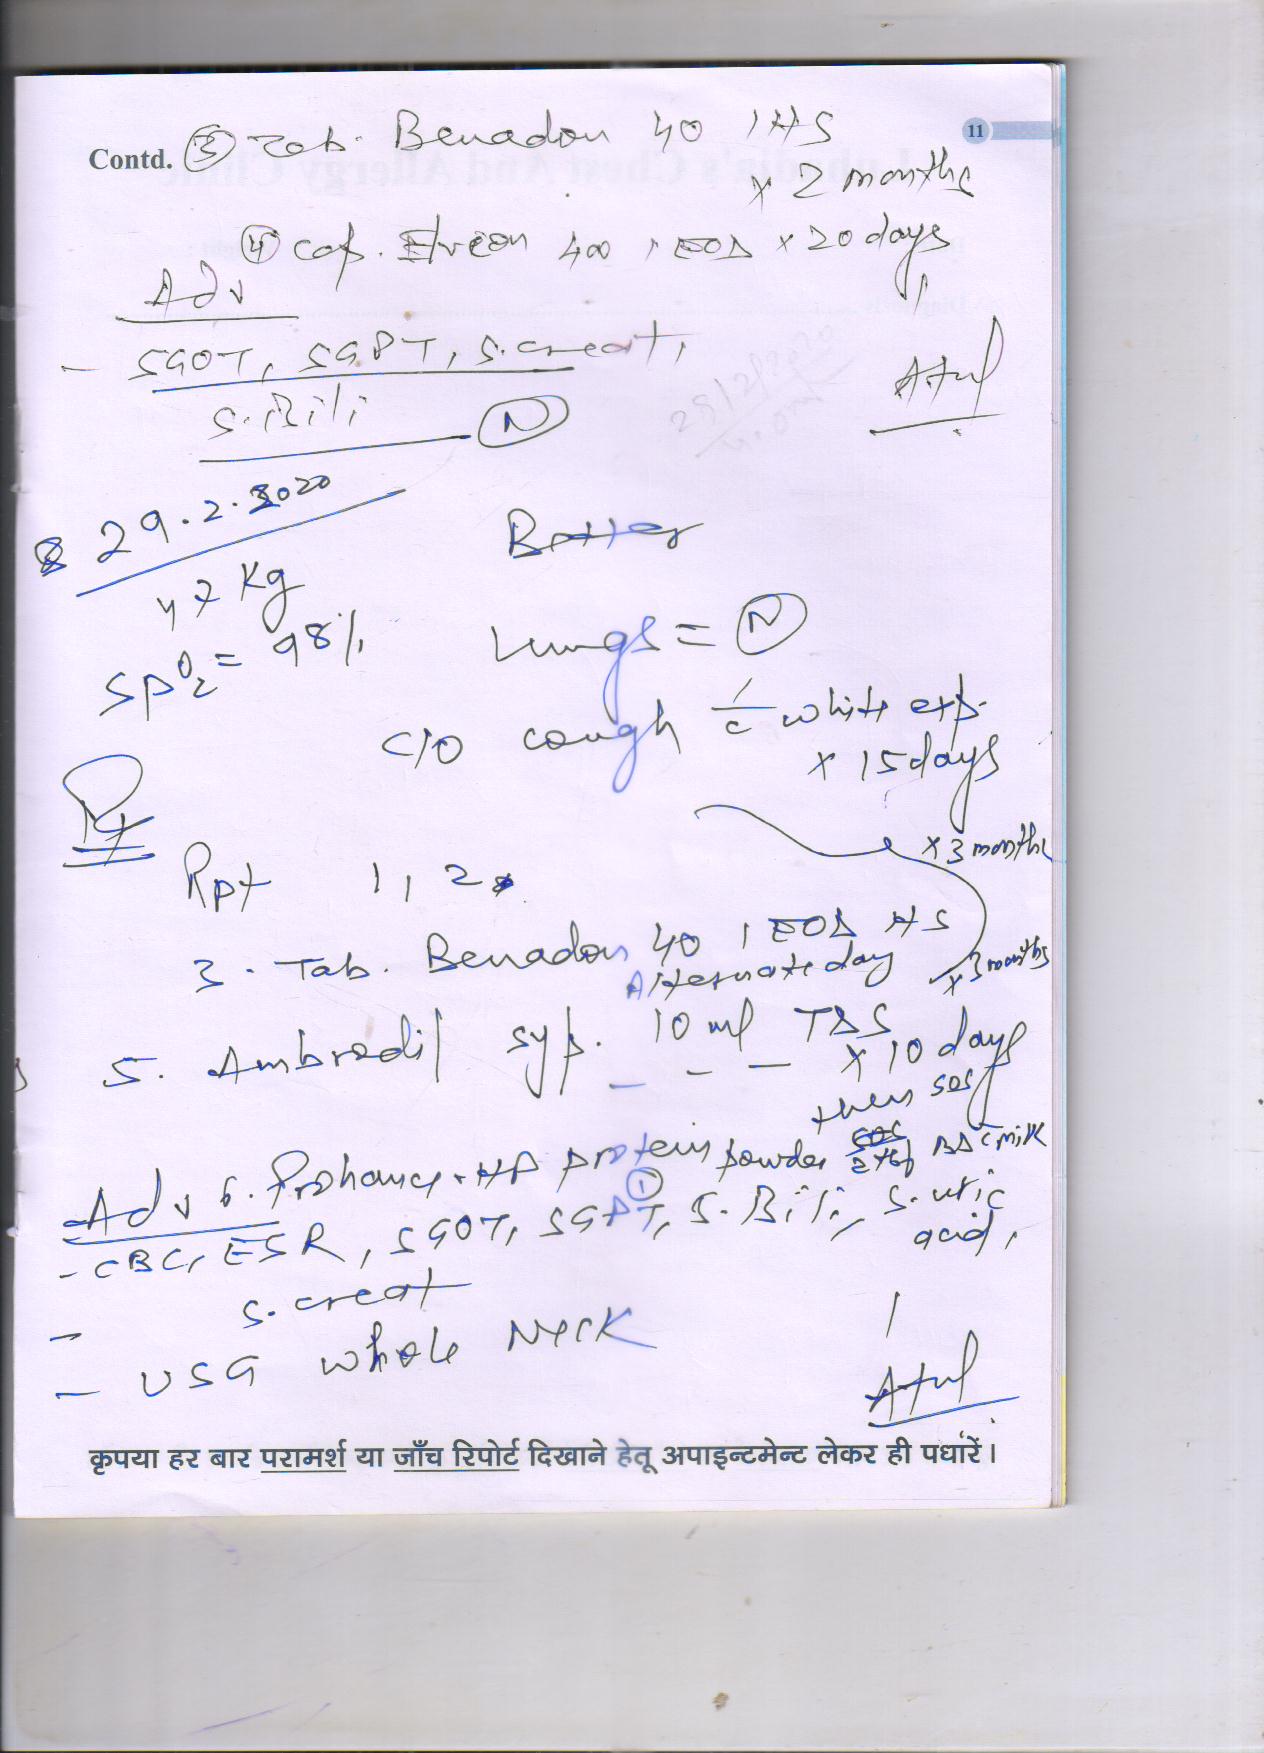 11
Contd. ③ Tab. Benadon 40 1 HS
x 2 months
④ Cap. Evion 400 1 EOD x 20 days
Adv
- SGOT, SGPT, S.creat,
S.Bili Ⓝ
Atul
29.2.2020
47 Kg
Better
SpO2 = 98%
Lungs = Ⓝ
C/O cough c white exp.
x 15 days
Rx
x 3 months
Rpt 1, 2
3. Tab. Benadon 40 1 EOD HS
Alternate day x 3 months
5. Ambrodil syp. 10 ml TDS
- - - x 10 days
then SOS
6. Prohance-HP protein powder 2 tsf BD c milk
Adv ①
- CBC, ESR, SGOT, SGPT, S.Bili, S.uric
acid,
- S.creat
- USG whole Neck
Atul
कृपया हर बार परामर्श या जाँच रिपोर्ट दिखाने हेतू अपाइन्टमेन्ट लेकर ही पधारें।